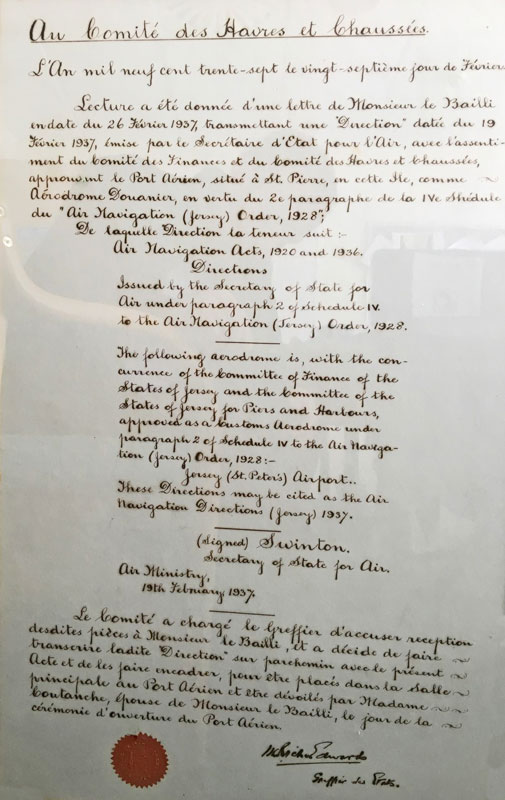 Au Comité des Havres et Chaussées.
L'An mil neuf cent trente-sept le vingt-septième jour de Février
Lecture a été donnée d'une lettre de Monsieur le Bailli
en date du 26 Février 1937, transmettant une "Direction" datée du 19
Février 1937, émise par le Secrétaire d'Etat pour l'Air, avec l'assenti-
ment du Comité des Finances et du Comité des Havres et Chaussées,
approuvant le Port Aérien, situé à St. Pierre, en cette Ile, comme
Aérodrome Douanier, en vertu du 2e paragraphe de la IVe Shédule
du "Air Navigation (Jersey) Order, 1928";
De laquelle Direction la teneur suit :-
Air Navigation Acts, 1920 and 1936.
Directions
Issued by the Secretary of State for
Air under paragraph 2 of Schedule IV.
to the Air Navigation (Jersey) Order, 1928.
The following aerodrome is, with the con-
currence of the Committee of Finance of the
States of Jersey and the Committee of the
States of Jersey for Piers and Harbours,
approved as a Customs Aerodrome under
paragraph 2 of Schedule IV to the Air Naviga-
tion (Jersey) Order, 1928:-
Jersey (St. Peter's) Airport..
These Directions may be cited as the Air
Navigation Directions (Jersey) 1937.
(Signed) Swinton.
Secretary of State for Air.
Air Ministry,
19th February, 1937.
Le Comité a chargé le Greffier d'accuser réception
desdites pièces à Monsieur le Bailli, et a décidé de faire
transcrire ladite "Direction" sur parchemin avec le présent
Acte et de les faire encadrer, pour être placés dans la Salle
principale du Port Aérien et être dévoilés par Madame
Coutanche, épouse de Monsieur le Bailli, le jour de la
cérémonie d'ouverture du Port Aérien.
Greffier des Etats.